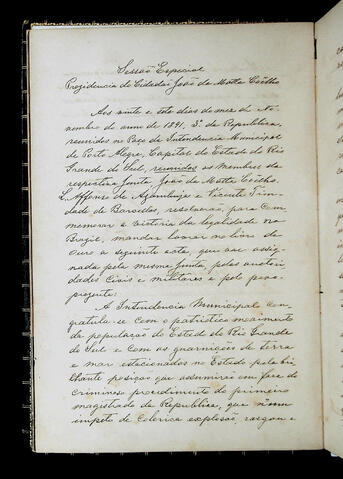 Sessão Especial
Prezidencia do Cidadão João da Matta Coêlho
Aos vinte e sete dias do mez de No-
vembro do anno de 1891, 3º da Republica,
reunidos no Paço da Intendencia Municipal
de Porto Alegre, Capital do Estado do Rio
Grande do Sul, reunidos os membros da
respectiva Junta, João da Matta Coêlho,
Affonso de Azambuja e Vicente Trin-
dade de Barcellos, resolverão, para com-
memorar a victoria da legalidade no
Brazil, mandar lavrar no livro de
ouro a seguinte acta, que vae assig-
nada pela mesma Junta, pelas autori-
dades civis e militares e pelo povo
projecto:
A Intendencia Municipal con-
gratula-se com o patriotico movimento
da população do Estado do Rio Grande
do Sul e com as guarnições de terra
e mar estacionados no Estado pela bri-
lhante posição que assumirão em face do
criminoso procedimento do primeiro
magistrado da Republica, que n'um
impeto de colerica explosão, rasgou a